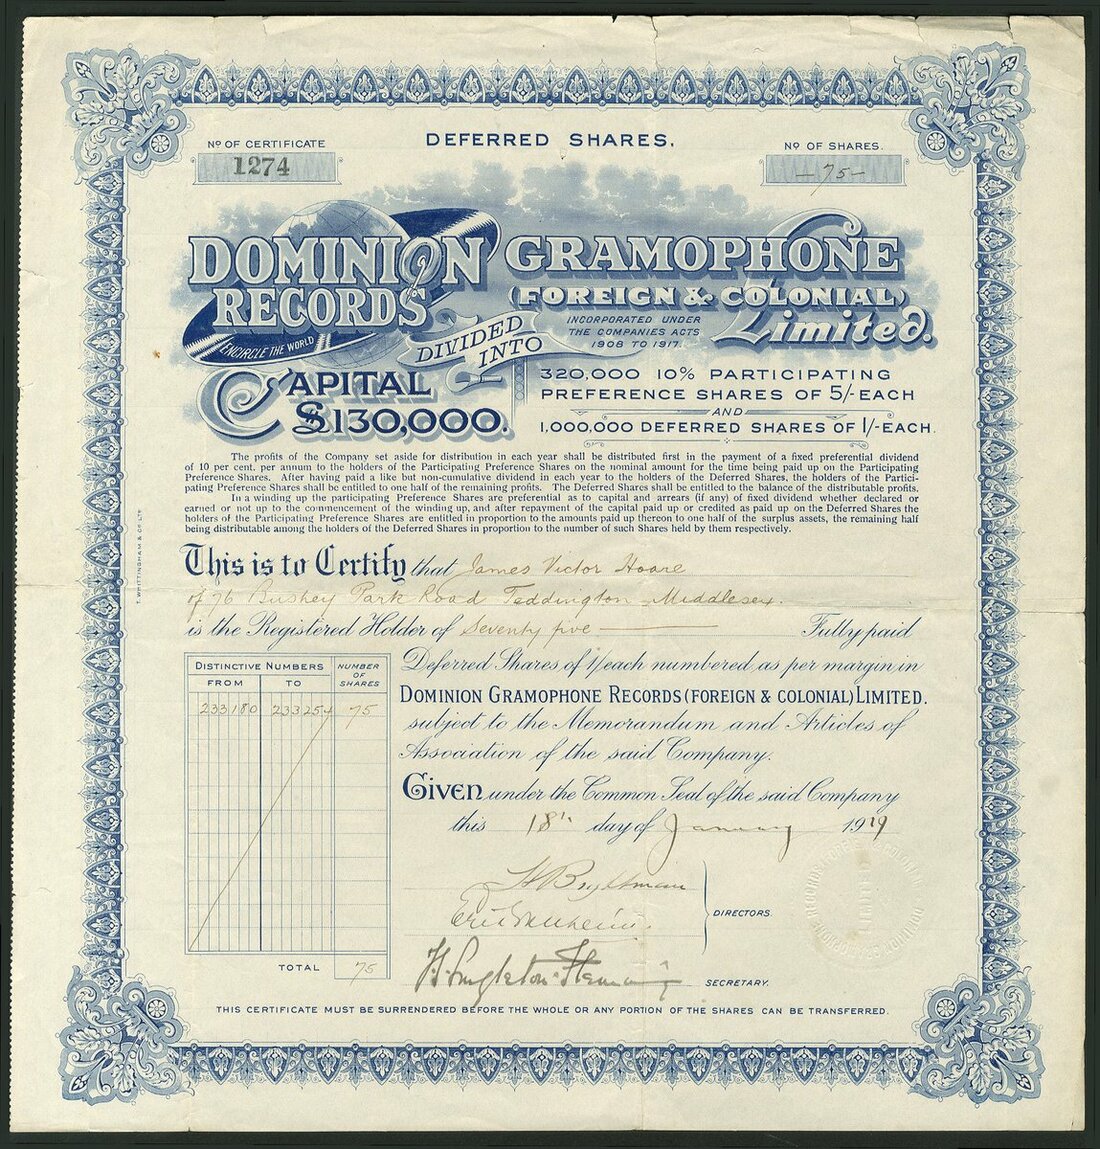 DEFERRED SHARES.
Nº OF CERTIFICATE
1274
Nº OF SHARES.
—75—
DOMINION GRAMOPHONE
RECORDS (FOREIGN & COLONIAL)
Limited.
ENCIRCLE THE WORLD
INCORPORATED UNDER
THE COMPANIES ACTS
1908 TO 1917.
CAPITAL
£130,000.
DIVIDED
INTO
320,000 10% PARTICIPATING
PREFERENCE SHARES OF 5/- EACH
AND
1,000,000 DEFERRED SHARES OF 1/- EACH.
The profits of the Company set aside for distribution in each year shall be distributed first in the payment of a fixed preferential dividend
of 10 per cent. per annum to the holders of the Participating Preference Shares on the nominal amount for the time being paid up on the Participating
Preference Shares. After having paid a like but non-cumulative dividend in each year to the holders of the Deferred Shares, the holders of the Partici-
pating Preference Shares shall be entitled to one half of the remaining profits. The Deferred Shares shall be entitled to the balance of the distributable profits.
In a winding up the participating Preference Shares are preferential as to capital and arrears (if any) of fixed dividend whether declared or
earned or not up to the commencement of the winding up, and after repayment of the capital paid up or credited as paid up on the Deferred Shares the
holders of the Participating Preference Shares are entitled in proportion to the amounts paid up thereon to one half of the surplus assets, the remaining half
being distributable among the holders of the Deferred Shares in proportion to the number of such Shares held by them respectively.
T. WHITTINGHAM & CO. LTD
This is to Certify that James Victor Hoare
of 76 Bushey Park Road Teddington Middlesex.
is the Registered Holder of Seventy five — Fully paid
Deferred Shares of 1/ each numbered as per margin in
DOMINION GRAMOPHONE RECORDS (FOREIGN & COLONIAL) LIMITED.
subject to the Memorandum and Articles of
Association of the said Company.
DISTINCTIVE NUMBERS
FROM TO
NUMBER
OF
SHARES
233180 233254 75
TOTAL 75
GIVEN under the Common Seal of the said Company
this 18th day of January 1919
DIRECTORS.
H. Singleton-Fleming
SECRETARY.
THIS CERTIFICATE MUST BE SURRENDERED BEFORE THE WHOLE OR ANY PORTION OF THE SHARES CAN BE TRANSFERRED.